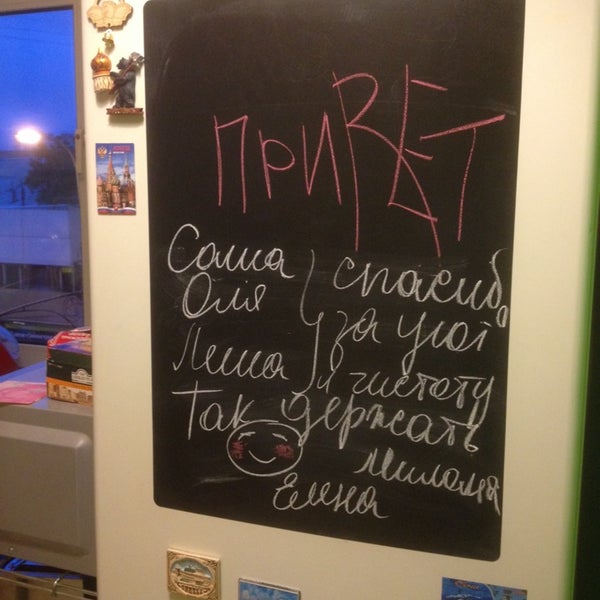 ПРИВЕТ
Саша спасибо
Оля за уют
Леша и чистоту
Так держать
Милана
Елена